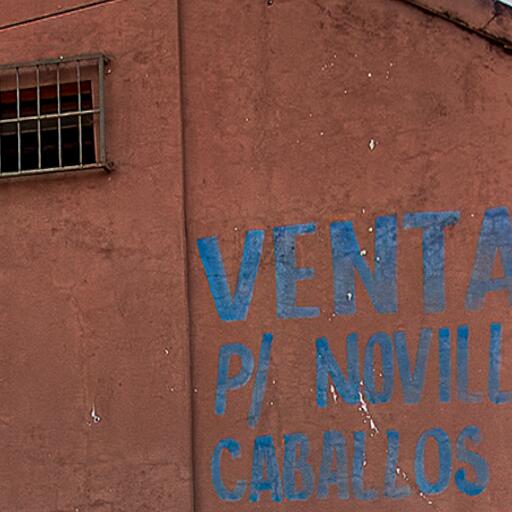 VENTA
P/ NOVILL
CABALLOS